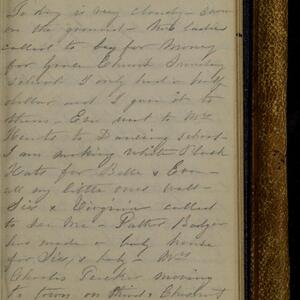 To day is very cloudy - snow
on the ground - two ladies
called to beg for Money
for Grace Church Sunday
School I only had a half
dollar and I gave it to
them - Eva went to Mrs
to Dancing school -
I am making white Plush
Hats for Belle & Eva -
all my little ones well -
Sis & Virginia called
to see me -
has made a house
for Sis, & baby - Mrs
Charles moving
to town on third & Chestnut